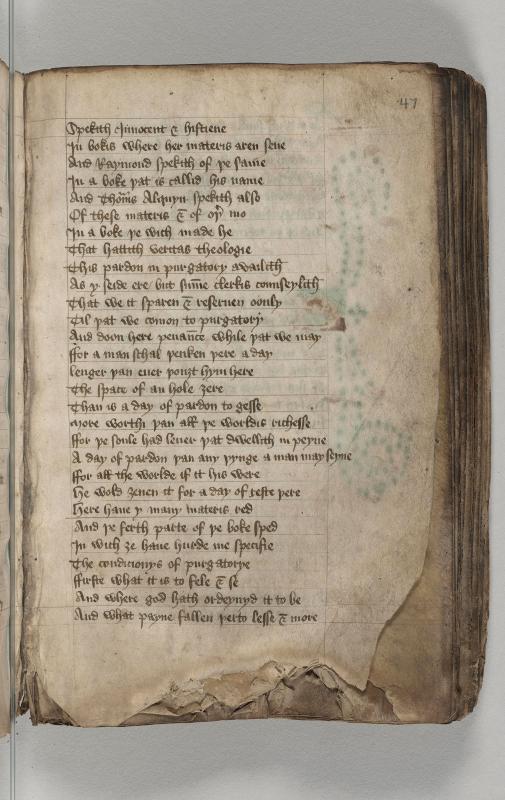 47
Spekith Innocent & histiene
In bokis where her materis aren sene
And Raymond spekith of þe same
In a boke þat is callid his name
And Thoms Alquyn spekith also
Of these materis & of oþ mo
In a boke þe wich made he
That hattith veritas theologie
This pardon in purgatory availith
As y seide ere but sume clerkis counseylith
That we it sparen & reseruen oonly
Til þat we comon to purgatory
And doon here penance while þat we may
ffor a man schal þenken þere a day
lenger þan euer þouȝt hym here
The space of an hole ȝere
Than is a day of pardon to gesse
More worthi þan all þe worldis richesse
ffor þe soule had leuer þat dwellith in peyne
A day of pardon þan any þynge a man may seyne
ffor all the worlde if it his were
He wold ȝeuen it for a day of reste þere
Here haue y many materis red
And þe ferth parte of þe boke sped
In wich ȝe haue hurde me specifie
The condicionys of purgatorye
ffirste what it is to fele & se
And where god hath ordeynyd it to be
And what payne fallen þerto lesse & more